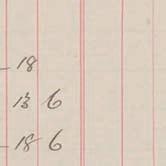 - 18
13 6
- 18 6